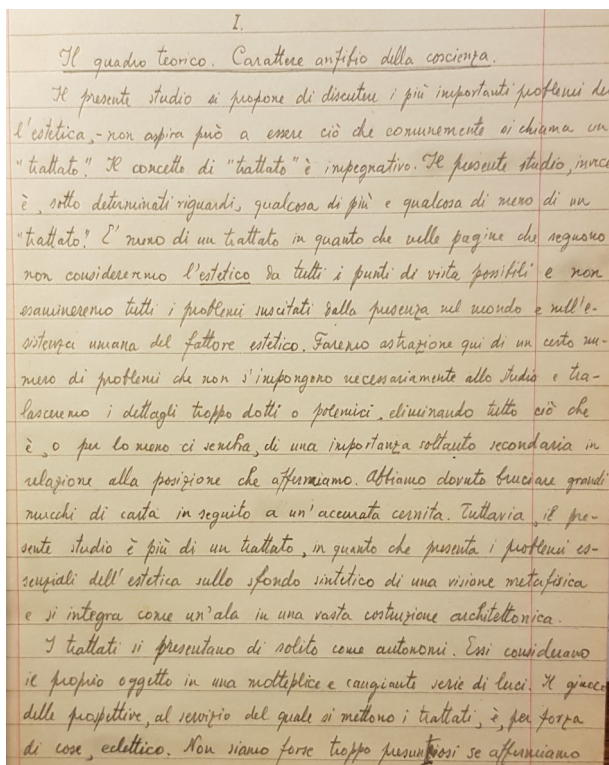 I.
Il quadro teorico. Carattere anfibio della coscienza.
Il presente studio si propone di discutere i più importanti problemi de
l'estetica, - non aspira però a essere ciò che comunemente si chiama un
"trattato". Il concetto di "trattato" è impegnativo. Il presente studio, invece
è, sotto determinati riguardi, qualcosa di più e qualcosa di meno di un
"trattato". E' meno di un trattato in quanto che nelle pagine che seguono
non considereremo l'estetico da tutti i punti di vista possibili e non
esamineremo tutti i problemi suscitati dalla presenza nel mondo e nell'e-
sistenza umana del fattore estetico. Faremo astrazione qui di un certo nu-
mero di problemi che non s'impongono necessariamente allo studio e tra-
lasceremo i dettagli troppo dotti o polemici, eliminando tutto ciò che
è, o per lo meno ci sembra, di una importanza soltanto secondaria in
relazione alla posizione che affermiamo. Abbiamo dovuto bruciare grandi
mucchi di carta in seguito a un'accurata cernita. Tuttavia, il pre-
sente studio è più di un trattato, in quanto che presenta i problemi es-
senziali dell'estetica sullo sfondo sintetico di una visione metafisica
e si integra come un'ala in una vasta costruzione architettonica.
I trattati si presentano di solito come autonomi. Essi considerano
il proprio oggetto in una molteplice e cangiante serie di luci. Il giuoco
delle prospettive, al servizio del quale si mettono i trattati, è, per forza
di cose, eclettico. Non siamo forse troppo presuntuosi se affermiamo